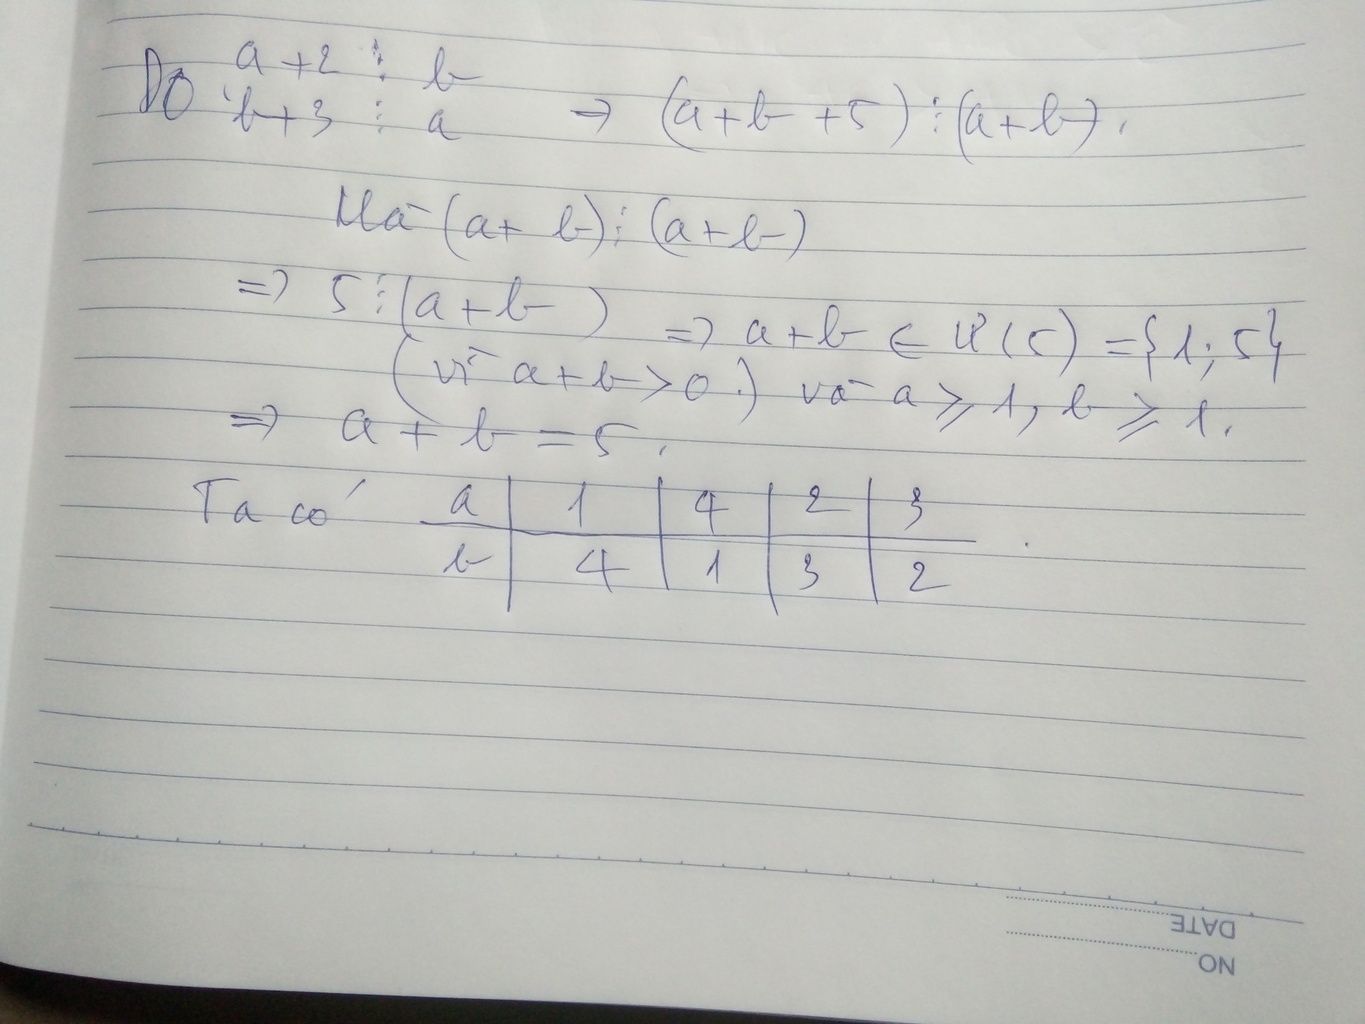 Do a+2 ⋮ b
b+3 ⋮ a ⇒ (a+b+5) ⋮ (a+b).
Mà (a+b) ⋮ (a+b)
⇒ 5 ⋮ (a+b) ⇒ a+b ∈ Ư(5) = {1; 5}
(vì a+b>0.) và a ⩾ 1, b ⩾ 1.
⇒ a+b = 5.
Ta có a | 1 | 4 | 2 | 3
b | 4 | 1 | 3 | 2
DATE
NO